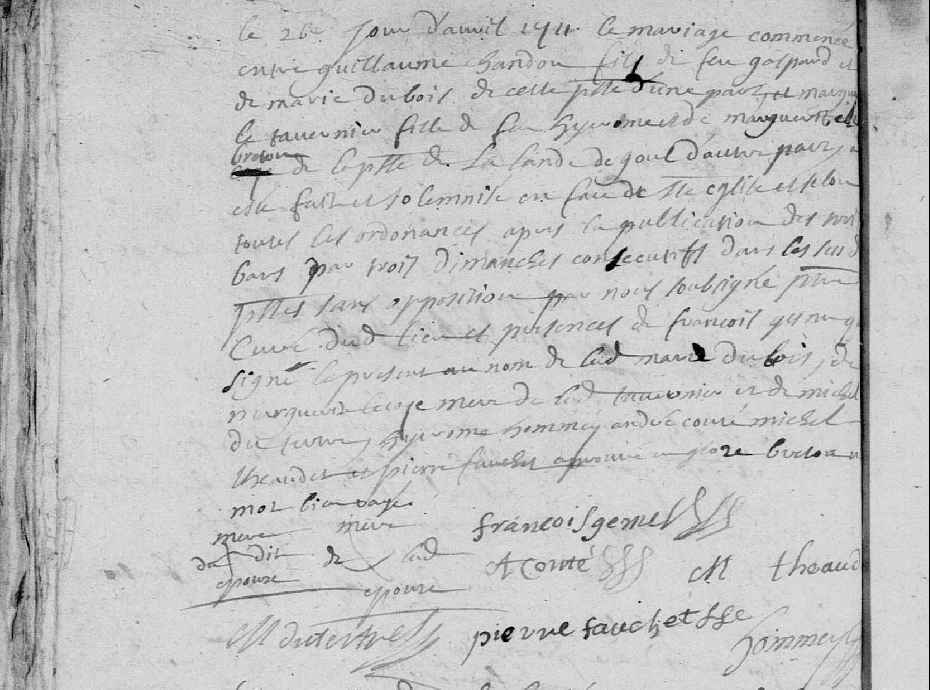 le 26e jour d'avril 1711 le mariage commencé
entre guillaume handou fils de feu gaspard et
de marie dubois de cette psse d'une part, et margu
le tavernier fille de feu hyerome et de marguerite le
breton
de la psse de La lande de goul d'autre part, a
esté fait et solemnisé en face de Ste eglise et selon
toutes les ordonances apres la publication des trois
bans par trois dimanches consecutifs dans les susd
psses sans opposition par nous soubsigné ptre
Curé dud lieu et presences de francois gemel q
signé le present au nom de lad marie dubois, de
marguerit mere de lad tavernier et de michel
du tertre, hyerome hommey andré couté michel
theaudet et pierre fauchet aprouvé en glose breton
mot
mere mere
du dit de lad
epoure epoure
francois gemel
A Couté
M theaud
M dutertre
pierre fauchet
hommey